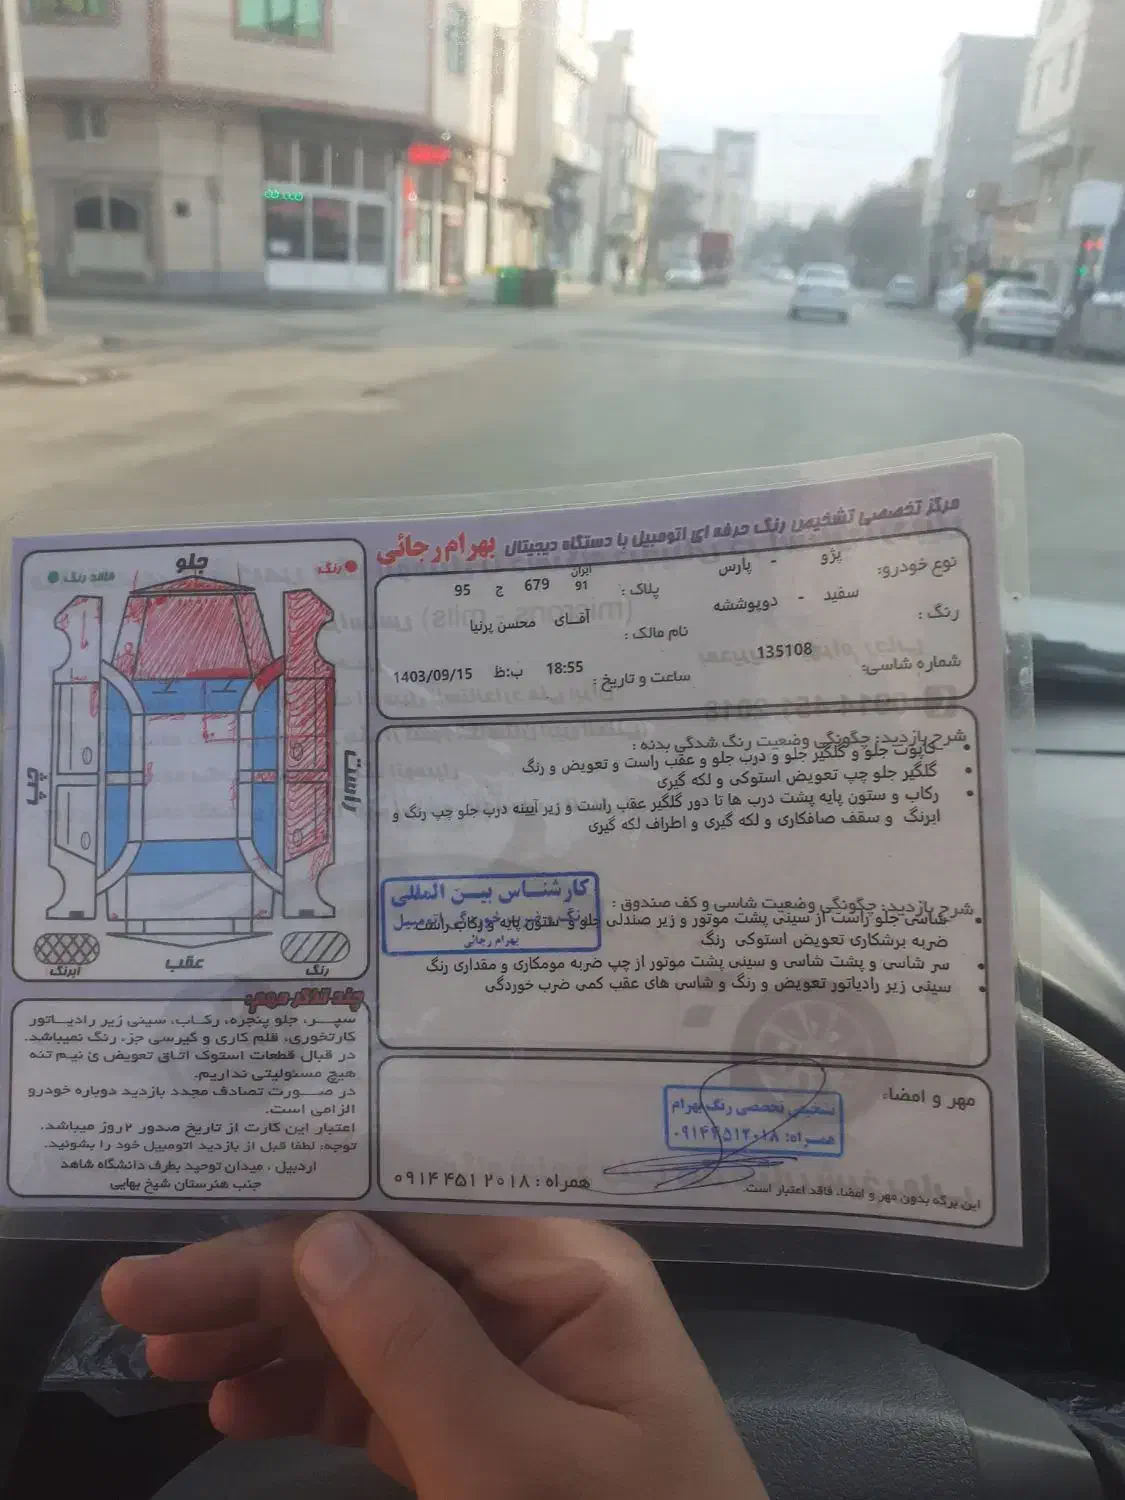 مرکز تخصصی تشخیص رنگ حرفه ای اتومبیل با دستگاه دیجیتال بهرام رجائی
نوع خودرو: پژو - پارس
پلاک : ایران 91 679 ج 95
رنگ : سفید - دوپوششه
نام مالک : آقای محسن پرنیا
شماره شاسی: 135108
ساعت و تاریخ : 18:55 ب:ظ 1403/09/15
شرح بازدید: چگونگی وضعیت رنگ شدگی بدنه :
کاپوت جلو و گلگیر جلو و درب جلو و عقب راست و تعویض و رنگ
گلگیر جلو چپ تعویض استوکی و لکه گیری
رکاب و ستون پایه پشت درب ها تا دور گلگیر عقب راست و زیر آیینه درب جلو چپ رنگ و
ابرنگ و سقف صافکاری و لکه گیری و اطراف لکه گیری
شرح بازدید: چگونگی وضعیت شاسی و کف صندوق :
شاسی جلو راست از سینی پشت موتور و زیر صندلی جلو و ستون پایه و رکاب راست
ضربه برشکاری تعویض استوکی رنگ
سر شاسی و پشت شاسی و سینی پشت موتور از چپ ضربه مومکاری و مقداری رنگ
سینی زیر رادیاتور تعویض و رنگ و شاسی های عقب کمی ضرب خوردگی
کارشناس بین المللی
بهرام رجائی
مهر و امضاء
تشخیص تخصصی رنگ بهرام
همراه: ۰۹۱۴۴۵۱۲۰۱۸
همراه : ۰۹۱۴ ۴۵۱ ۲۰۱۸
این برگه بدون مهر و امضا، فاقد اعتبار است.
رنگ
فاقد رنگ
جلو
راست
چپ
عقب
رنگ
آبرنگ
چند تذکر مهم:
سپر، جلو پنجره، رکاب، سینی زیر رادیاتور
کارتخوری، قلم کاری و گیرسی جزء رنگ نمیباشد.
در قبال قطعات استوک اتاق تعویض ئ نیم تنه
هیچ مسئولیتی نداریم.
در صورت تصادف مجدد بازدید دوباره خودرو
الزامی است.
اعتبار این کارت از تاریخ صدور ۲روز میباشد.
توجه: لطفا قبل از بازدید اتومبیل خود را بشوئید.
اردبیل ، میدان توحید بطرف دانشگاه شاهد
جنب هنرستان شیخ بهایی